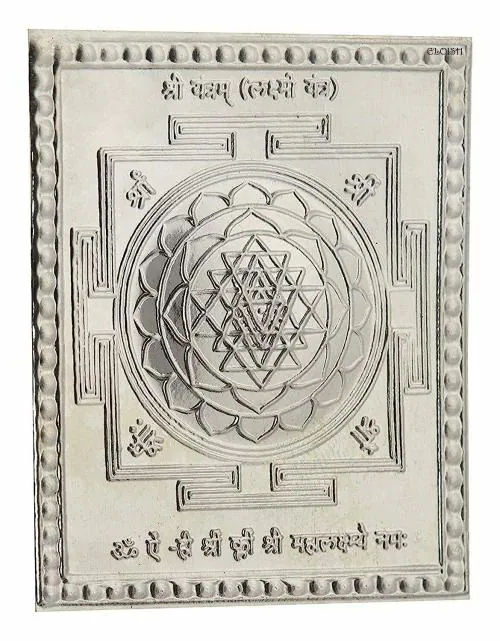 ELOISH
श्री यंत्रम् (लक्ष्मी यंत्र)
श्रीं श्रीं
ॐ ऐं ह्रीं श्रीं क्लीं श्री महालक्ष्म्ये नमः